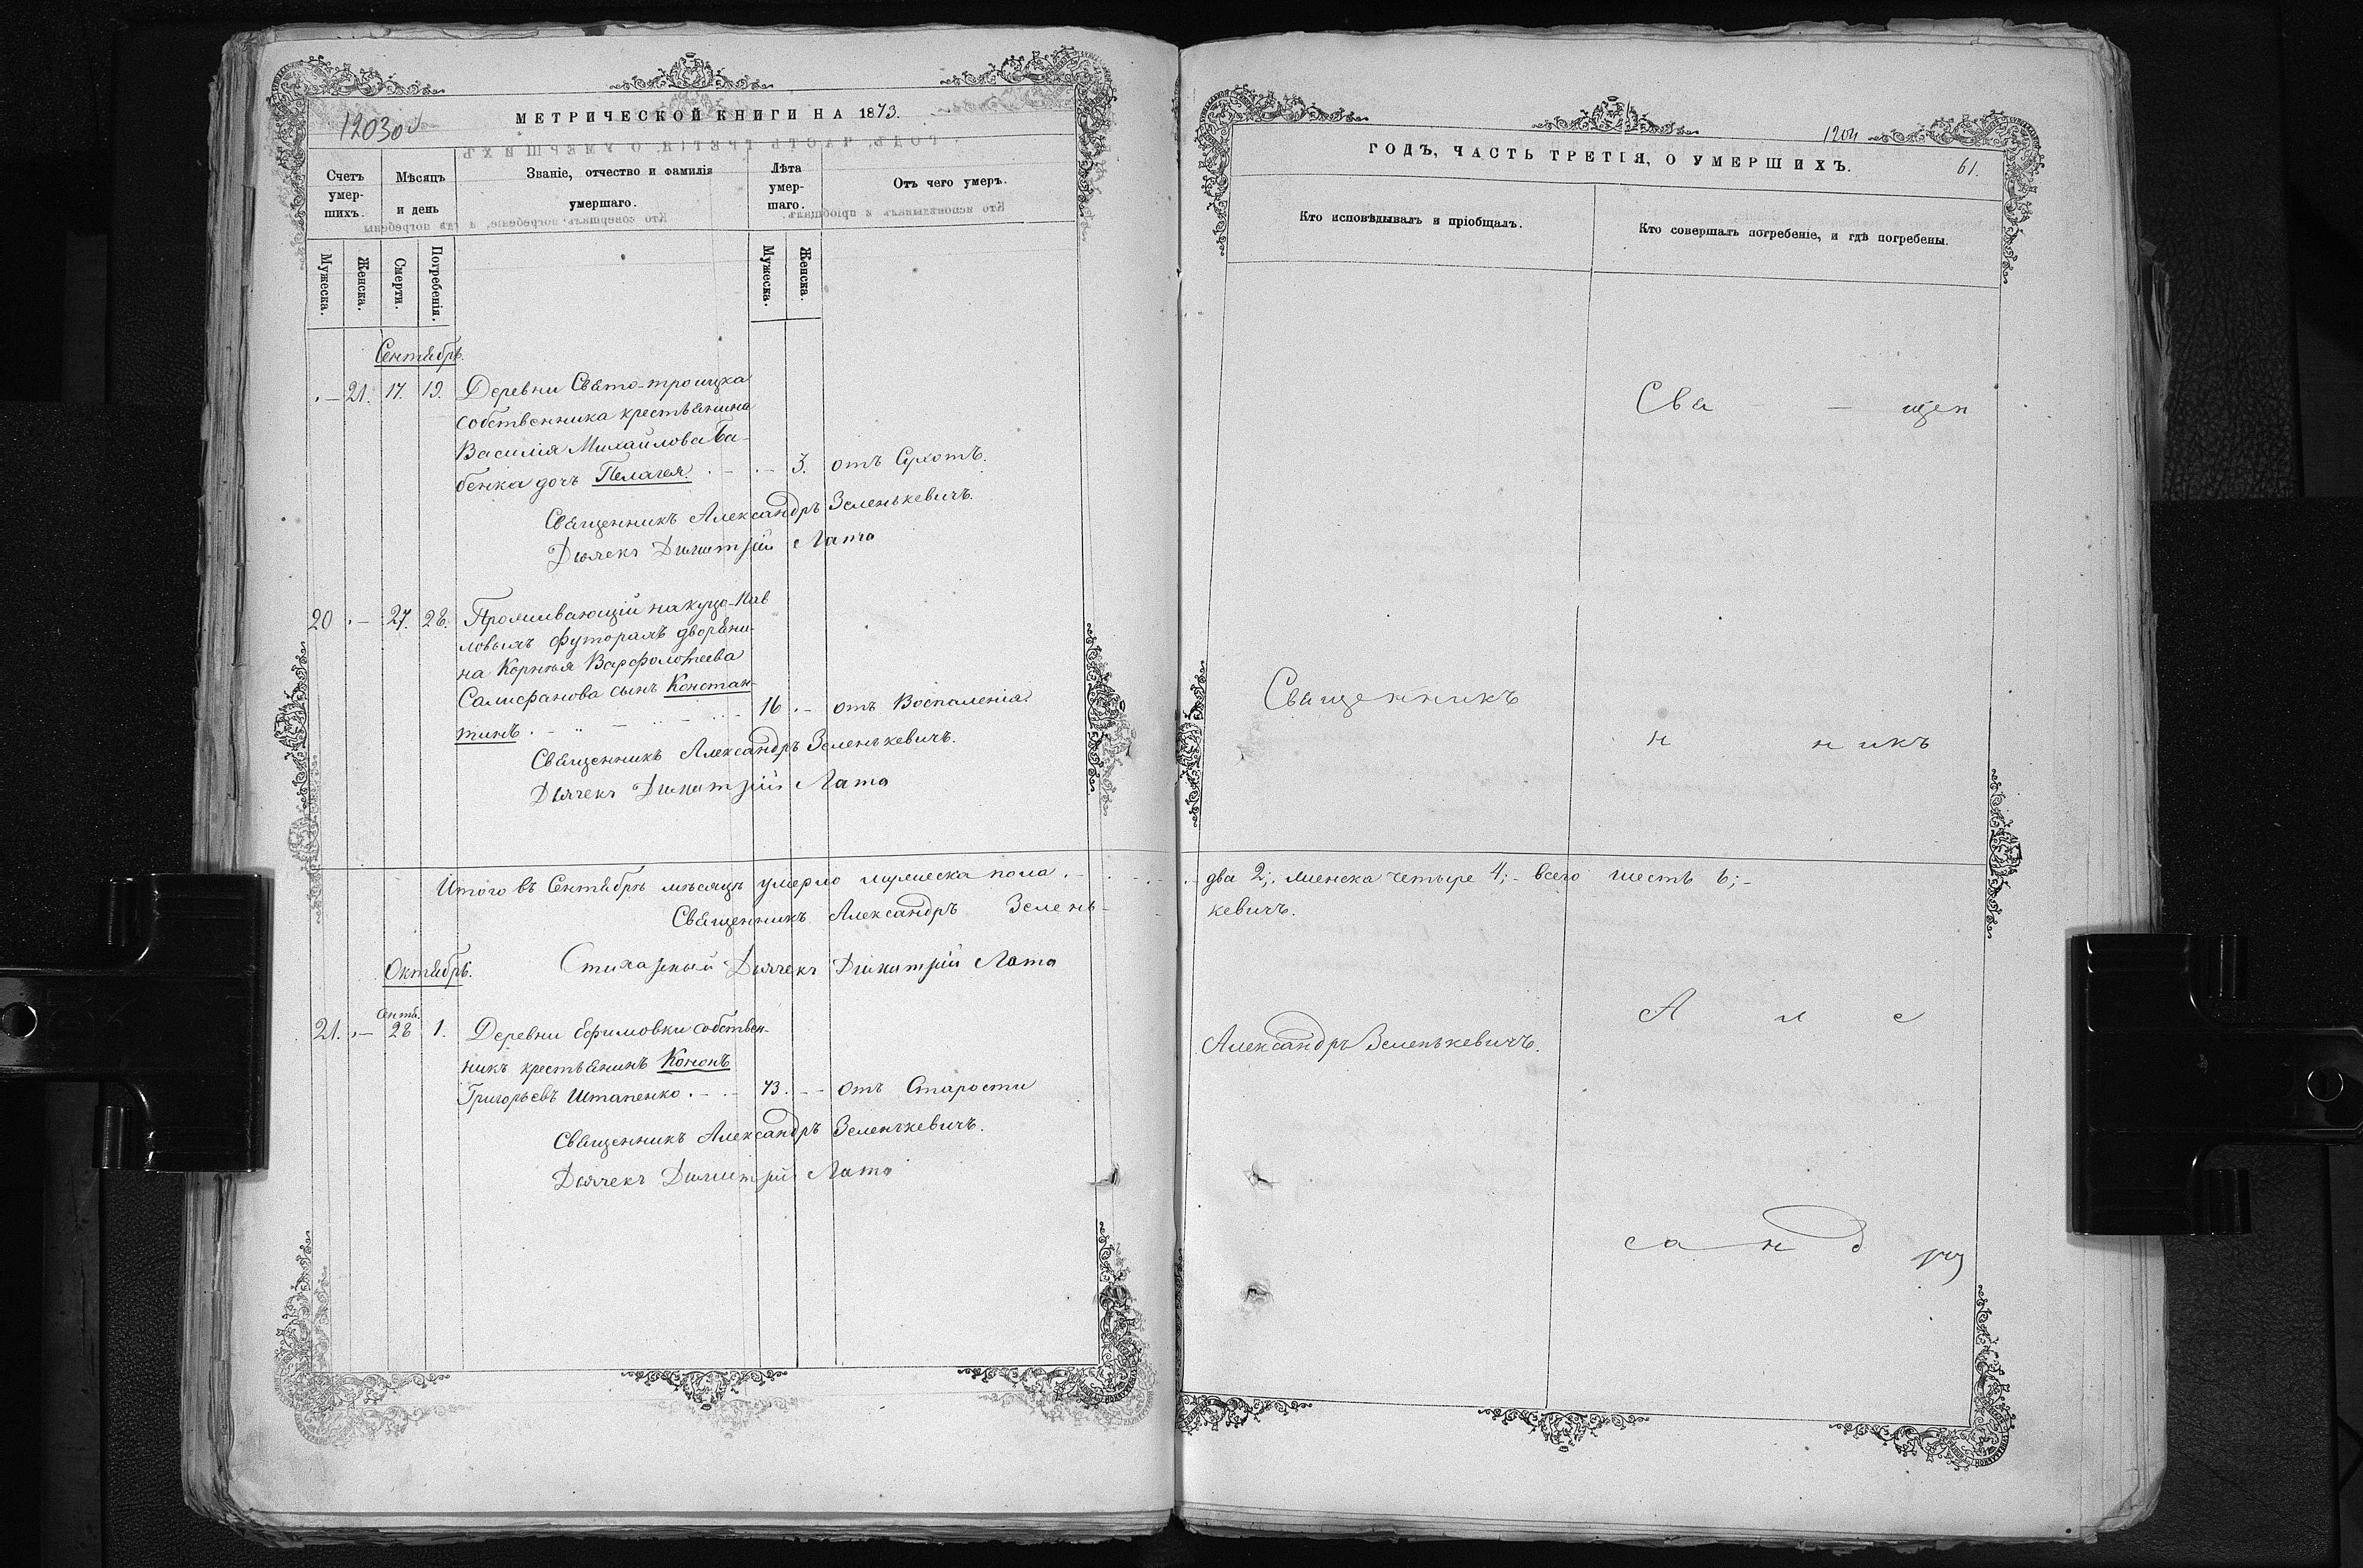 МЕТРИЧЕСКОЙ КНИГИ НА 1873.
Счетъ умер-шихъ.
Мѣсяцъ и день
Званіе, отчество и фамилія умершаго.
Лѣта умер-шаго.
Отъ чего умеръ.
Мужеска. Женска. Смерти. Погребенія. Мужеска. Женска.
Сентябрь.
21. 17. 19. Деревни Свято-троицка
собственника крестьянина
Василія Михайлова Ба-
бенка дочь Пелагея. 3. отъ Сухотъ.
Священникъ Александръ Зеленькевичъ.
Дьячекъ Димитрій Лата
20 27. 28. Проживающій на Куцо-Пав
ловыхъ футорахъ дворяни-
на Корнилія Варфоломеева
сынъ Констан-
тинъ 16 отъ Воспаленія
Священникъ Александръ Зеленькевичъ.
Дьячекъ Димитрій Лата
Итого въ Сентябрѣ мѣсяцѣ умерло мужеска пола
Священникъ Александръ Зелень-
Октябрь. Стихарный Дьячекъ Димитрій Лата
Сентб.
21. 28 1. Деревни Ефимовки собствен-
никъ крестьянинъ Кононъ
Григорьевъ Штапенко 73. отъ Старости
Священникъ Александръ Зеленькевичъ.
Дьячекъ Димитрій Лата
1204
ГОДЪ, ЧАСТЬ ТРЕТІЯ, О УМЕРШИХЪ.
61.
Кто исповѣдывалъ и пріобщалъ.
Кто совершалъ погребеніе, и гдѣ погребены.
Свя щен
Священникъ
н никъ
два 2; женска четыре 4; всего шесть 6;
кевичъ.
А л е
Александръ Зеленькевичъ.
с а н д ръ